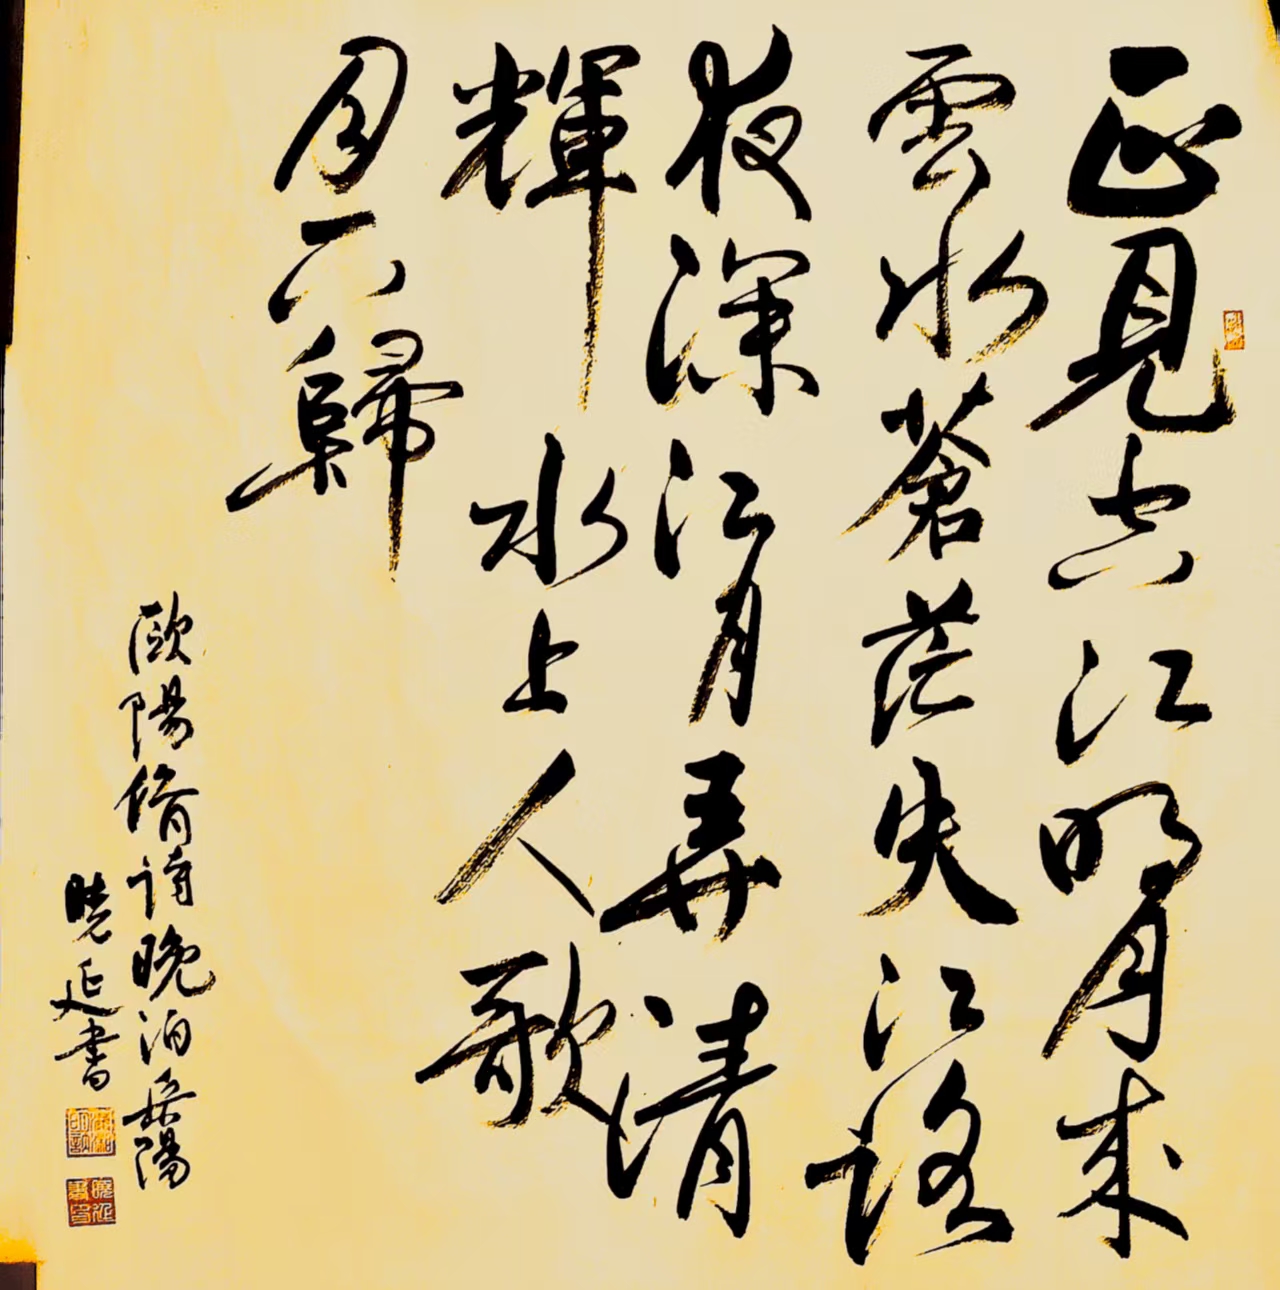 正見空江明月来
雲水蒼茫失江路
夜深江月弄清
輝水上人歌
月下歸
歐陽脩詩晚泊岳陽
晓延書